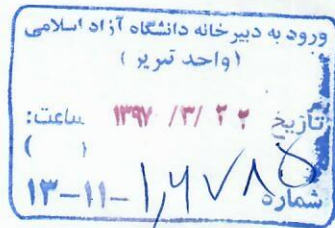 ورود به دبیرخانه دانشگاه آزاد اسلامی
( واحد تبریز )
تاریخ ۱۳۹۷ /۳/ ۲۲ ساعت:
( )
شماره ۱۳-۱۱-